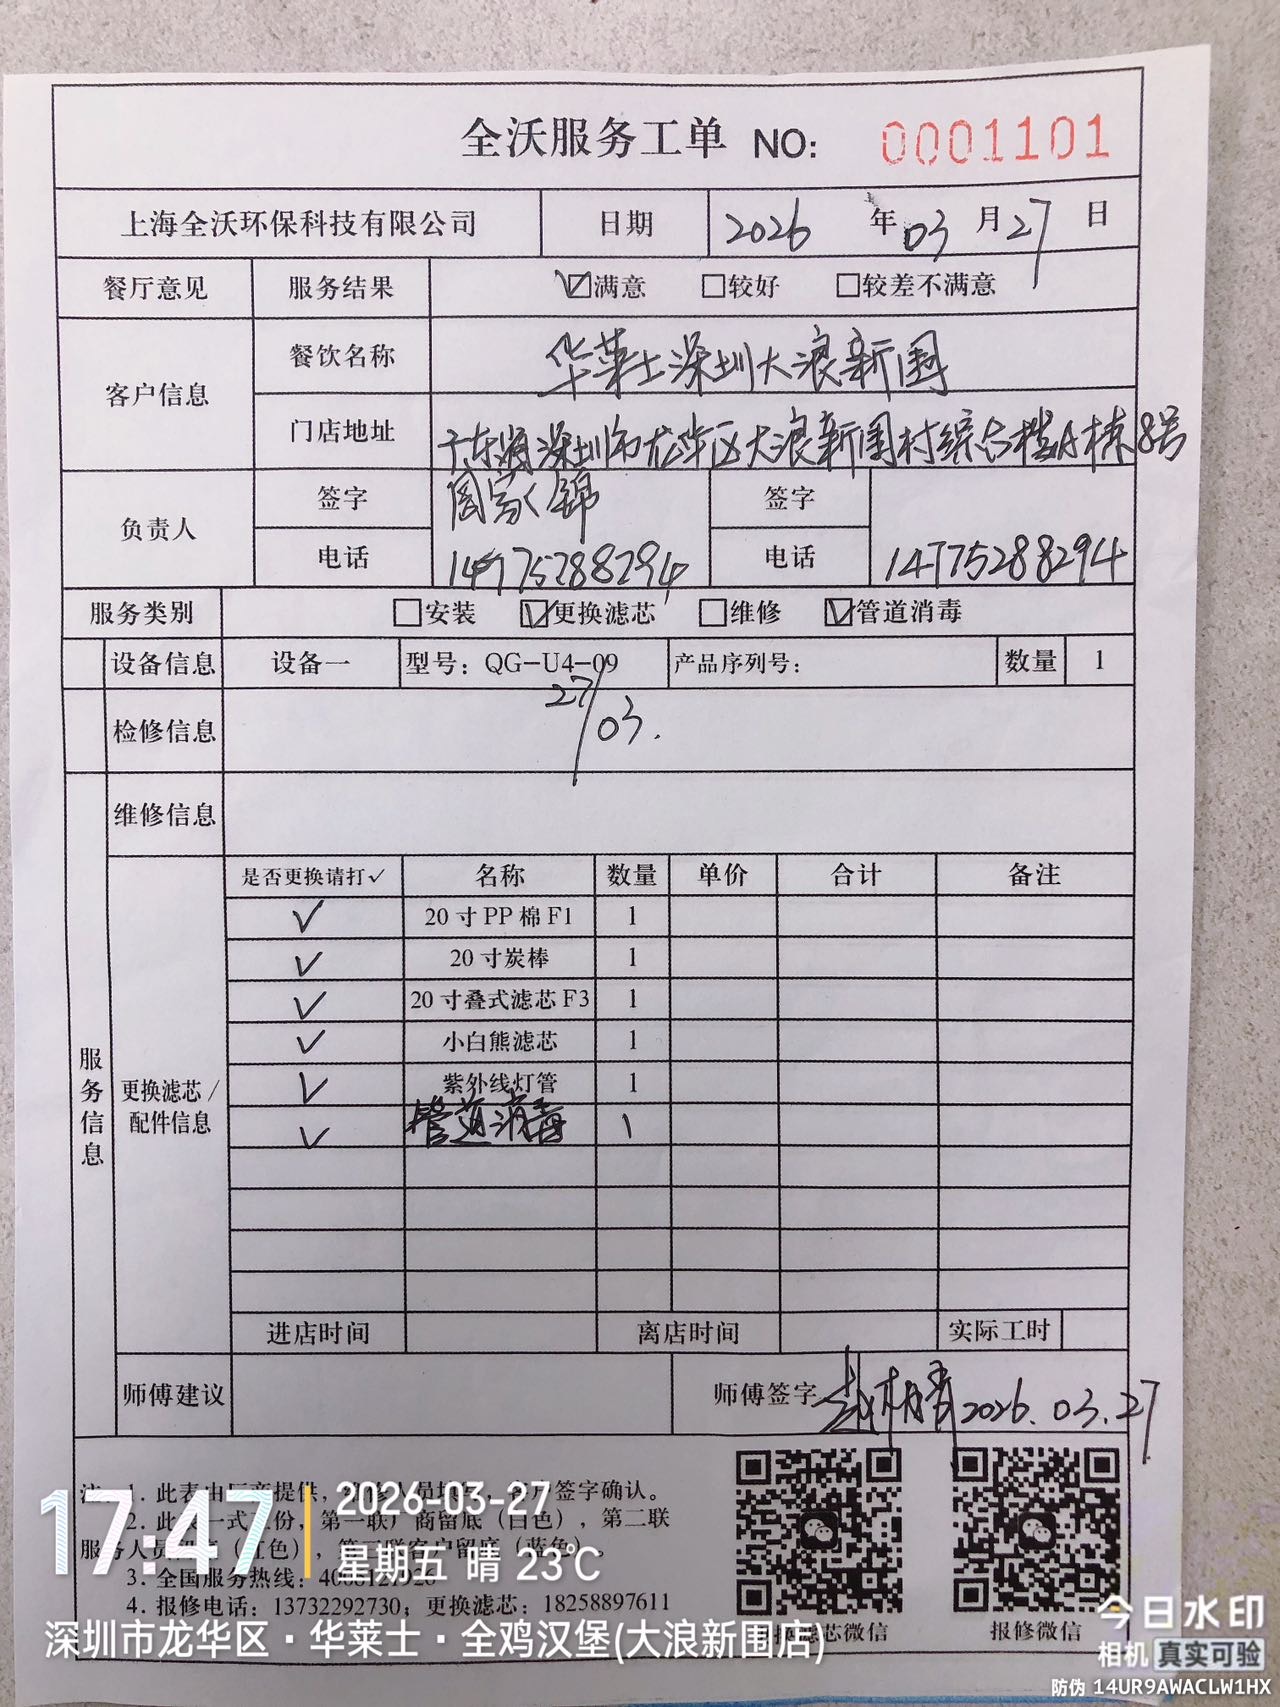 全沃服务工单 NO: 0001101
上海全沃环保科技有限公司 日期 2026 年 03 月 27 日
餐厅意见 服务结果 ☑满意 □较好 □较差不满意
客户信息 餐饮名称 华莱士深圳大浪新围
门店地址 广东省深圳市龙华区大浪新围村综合楼A栋8号
负责人 签字 周家锦 签字
电话 14775288294 电话 14775288294
服务类别 □安装 ☑更换滤芯 □维修 ☑管道消毒
设备信息 设备一 型号: QG-U4-09 产品序列号: 数量 1
检修信息 27/03.
维修信息
服务信息
更换滤芯/配件信息
是否更换请打✓ 名称 数量 单价 合计 备注
✓ 20寸PP棉F1 1
✓ 20寸炭棒 1
✓ 20寸叠式滤芯F3 1
✓ 小白熊滤芯 1
✓ 紫外线灯管 1
✓ 管道消毒 1
进店时间 离店时间 实际工时
师傅建议 师傅签字 2026.03.27
注: 1. 此表由厂商提供, 人员 签字确认。
2. 此表一式三份, 第一联厂商留底 (白色), 第二联
服务人员留底 (红色), 第三联客户留底 (蓝色)。
3. 全国服务热线:
4. 报修电话: 13732292730; 更换滤芯: 18258897611
更换滤芯微信 报修微信
17:47 2026-03-27
星期五 晴 23℃
深圳市龙华区·华莱士·全鸡汉堡(大浪新围店)
今日水印
相机 真实可验
防伪 14UR9AWACLW1HX